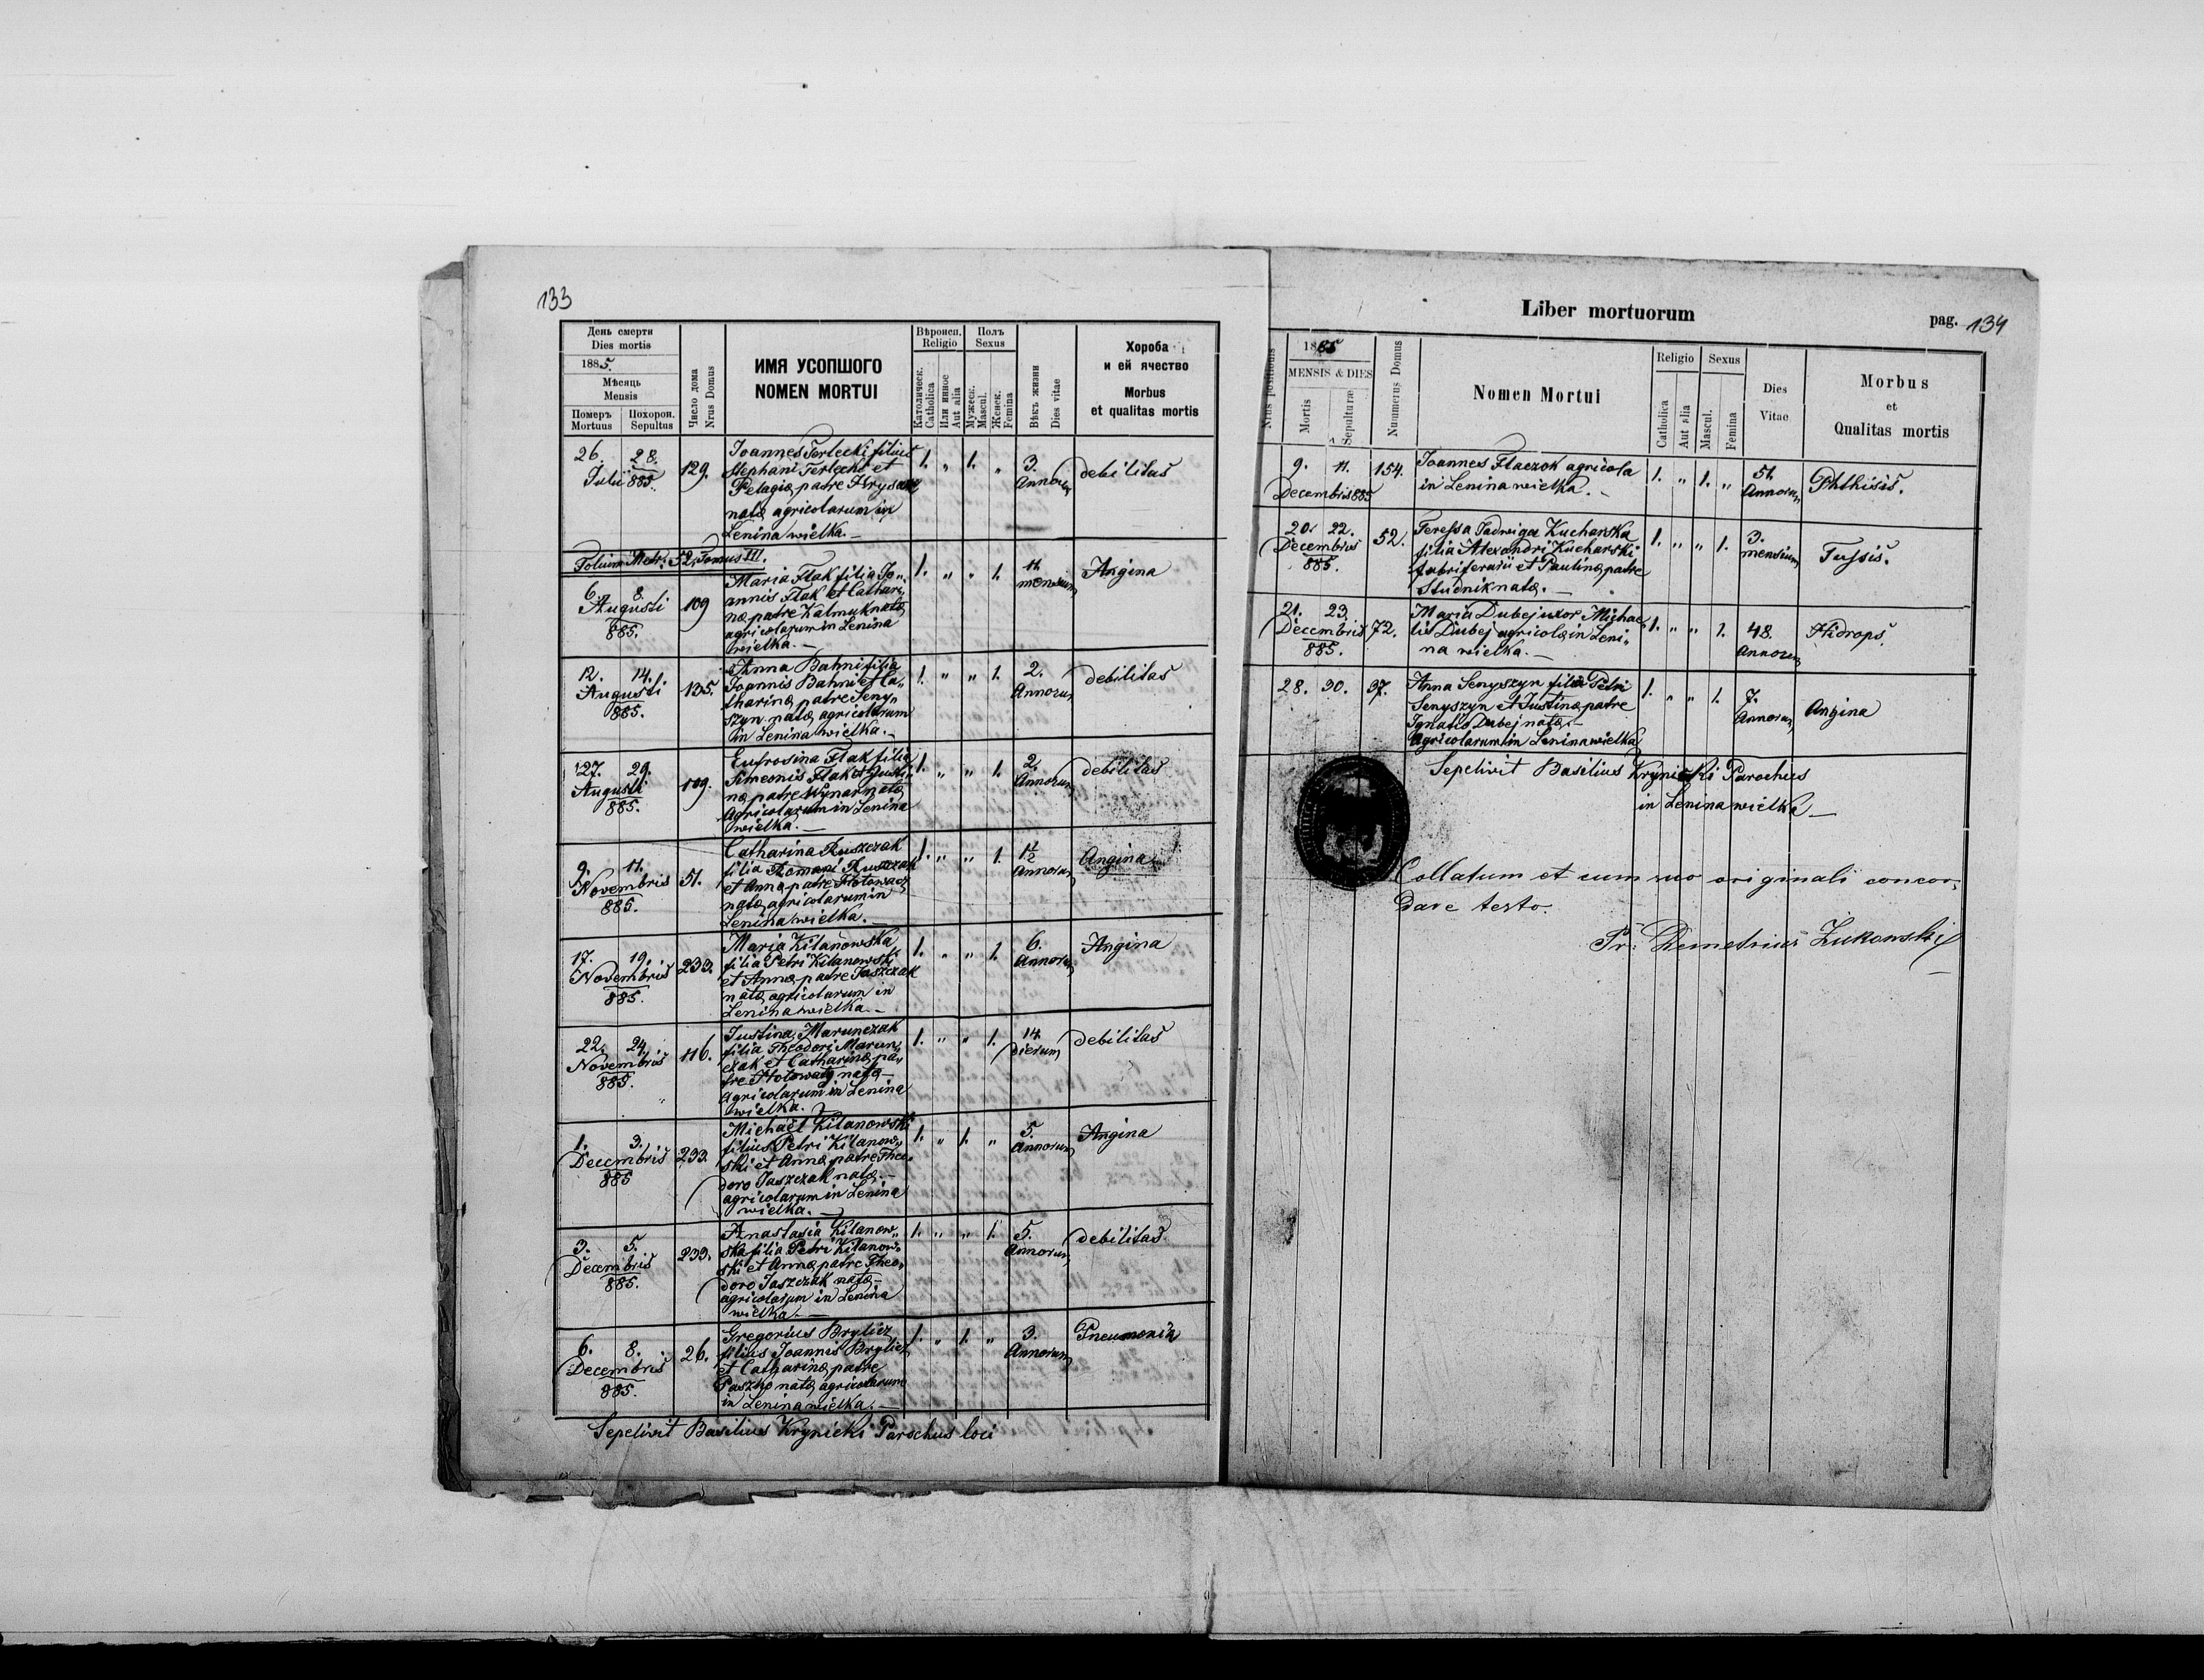 133
День смерти
Dies mortis
1885.
Мѣсяць
Mensis
Померъ
Mortuus
Похорон.
Sepultus
Число дома
Nrus Domus
ИМЯ УСОПШОГО
NOMEN MORTUI
Вѣроисп.
Religio
Католическ.
Catholica
Или инное
Aut alia
Полъ
Sexus
Мужеск.
Mascul.
Женск.
Femina
Вѣкъ жизни
Dies vitae
Хороба
и ей ячество
Morbus
et qualitas mortis
26. 28. Julii 885. 129.
Joannes Terlecki filius
Stephani Terlecki et
Pelagiæ patre
natæ agricolarum in
Lenina wielka.
1. „ 1. „ 3. Annorum debilitas
Folium Metr. 52, Tomus III.
6. 8. Augusti 885. 109
Maria Flak filia Jo„
annis Flak et Cathari„
næ patre Kalmuk natæ
agricolarum in Lenina
wielka.
1. „ „ 1. 11. mensium Angina
12. 14. Augusti 885. 135.
Anna Bahni filia
Joannis Bahni et Ca„
tharinæ patre Seny„
szyn natæ agricolarum
in Lenina wielka.
1. „ „ 1. 2. Annorum debilitas
27. 29. Augusti 885. 109.
Eufrosina Flak filia
Simeonis Flak et Justi„
næ patre Wynar natæ
Agricolarum in Lenina
wielka.
1. „ „ 1. 2. Annorum debilitas
9. 11. Novembris 885. 51.
Catharina Ruszczak
filia Romani Ruszczak
et Annæ patre
natæ agricolarum in
Lenina wielka.
1. „ „ 1. 1½ Annorum Angina
17. 19. Novembris 885. 233.
Maria Kilanowska
filia Petri Kilanowski
et Annæ patre Jaszczak
natæ agricolarum in
Lenina wielka.
1. „ „ 1. 6. Annorum Angina
22. 24. Novembris 885. 116.
Justina Marunczak
filia Theodori Marun„
czak et Catharinæ pa„
tre natæ
Agricolarum in Lenina
wielka.
1. „ „ 1. 14. dierum debilitas
1. 3. Decembris 885 233.
Michaël Kilanowski
filius Petri Kilanow„
ski et Annæ patre Theo„
doro Jaszczak natæ
agricolarum in Lenina
wielka.
1. „ 1. „ 5. Annorum Angina
3. 5. Decembris 885. 233.
Anastasia Kilanow„
ska filia Petri Kilanow„
ski et Annæ patre Theo„
doro Jaszczak natæ
agricolarum in Lenina
wielka.
1. „ „ 1. 5. Annorum debilitas
6. 8. Decembris 885. 26.
Gregorius Brylicz
filius Joannis Brylicz
et Catharinæ patre
Paszko natæ agricolarum
in Lenina wielka.
1. „ 1. „ 3. Annorum Pneumonia
Sepelivit Basilius Krynicki Parochus loci
Liber mortuorum
pag. 134
Nrus positionis
1885
MENSIS & DIES
Mortis
Sepulturæ
Nuumerus Domus
Nomen Mortui
Religio
Catholica
Aut alia
Sexus
Mascul.
Femina
Dies
Vitae
Morbus
et
Qualitas mortis
9. 11. Decembris 885 154.
Joannes Flaczok agricola
in Lenina wielka.
1. „ 1. „ 51. Annorum Phthisis.
20. 22. Decembris 885. 52.
Teressa Jadwiga Kucharska
filia Alexandri Kucharski
fabri ferarii et Paulinæ patre
Studnik natæ.
1. „ „ 1. 3. mensium Tussis.
21. 23. Decembris 885. 72.
Maria Dubej uxor Michae
lis Dubej agricolæ in Leni„
na wielka.
1. „ „ 1. 48. Annorum Hidrops.
28. 30. 37.
Anna Senyszyn filia Petri
Senyszyn et Justinæ patre
Ignatio Dubej natæ
Agricolarum in Lenina wielka
1. „ „ 1. 7. Annorum Angina
Sepelivit Basilius Krynicki Parochus
in Lenina wielka
Collatum et cum suo originali concor„
dare testo.
Pr. Demetrius Żukowskij